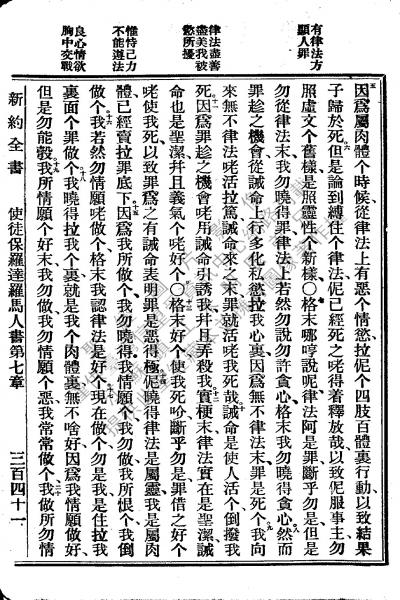 有律法方
顯人罪
律法盡善
盡美我被
慾所擾
惟恃己力
不能遵法
良心情欲
胸中交戰
因爲屬肉體个時候、從律法上有惡个情慾、拉伲个四肢百體裏行動、以致結果
子歸於死、但是論到縛住个律法、伲已經死之咾得着釋放哉、以致伲服事主、勿
照虛文个舊樣、是照靈性个新樣、〇格末哪哼說呢、律法阿是罪、斷乎勿是、但是
勿從律法末、我勿曉得罪、律法上若然勿說勿許貪心、格末我勿曉得貪心、然而
罪趁之機會、從誡命上行多化私慾拉我心裏、因爲無不律法末、罪是死个、我向
來無不律法咾活拉、篤誡命來之末、罪就活咾我死哉、誡命是使人活个、倒撥我
死、因爲罪趁之機會咾用誡命引誘我、幷且弄殺我、實梗末律法實在是聖潔、誡
命也是聖潔、幷且義氣个咾好个、〇格末好个使我死吤、斷乎勿是、罪借之好个
咾使我死、以致罪爲之有誡命、表明罪是惡得極、伲曉得律法是屬靈、我是屬肉
體、已經賣拉罪底下、因爲我所做个、我勿曉得、我情願个、我勿做、我所恨个、我倒
做个、我若然勿情願咾做个、格末我認律法是好个、現在做个勿是我、是住拉我
裏面个罪做个、我曉得拉我个裏就是我个肉體裏、無不啥好、因爲我情願做好、
但是勿能彀、我所情願个好末、我勿做、我勿情願个惡、我常常做个、我做所勿情
新約全書　使徒保羅達羅馬人書第七章　三百四十一